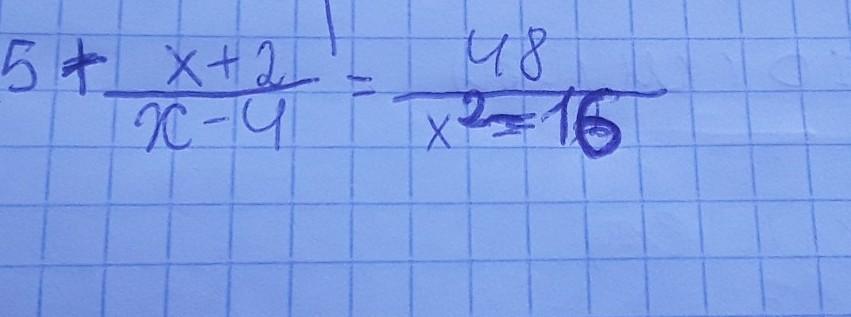 5 + x+2 / x-4 = 48 / x²-16